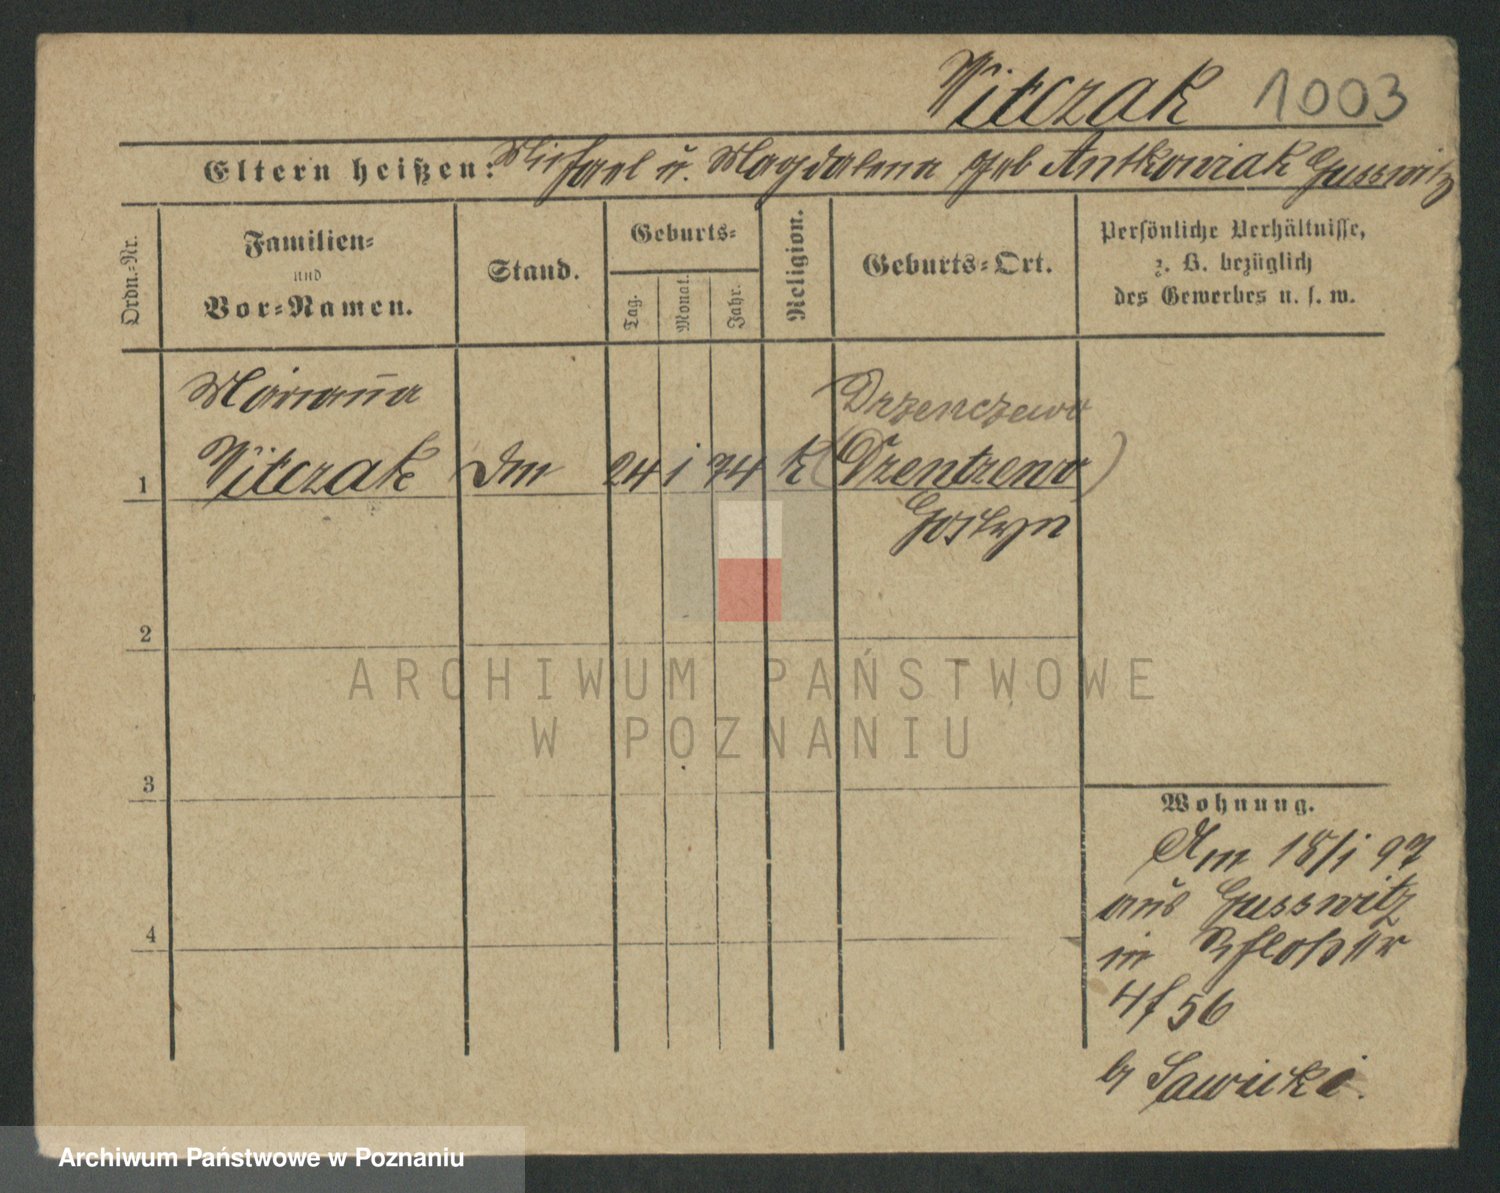 Witczak 1003
Eltern heißen: Michael u. Magdalena geb Antkowiak Gusswitz
Ordn.-Nr.
Familien-
und
Vor-Namen.
Stand.
Geburts-
Tag.
Monat.
Jahr.
Religion.
Geburts-Ort.
Persönliche Verhältnisse,
z. B. bezüglich
des Gewerbes u. s. w.
Marianna
Drzenczewo
1 Witczak 24 1 74 k (Drzentzewo)
Gostyn
2
3
4
Wohnung.
Am 18/1 97
aus Gusswitz
in
4/56
b Sawicki.
ARCHIWUM PAŃSTWOWE
W POZNANIU
Archiwum Państwowe w Poznaniu